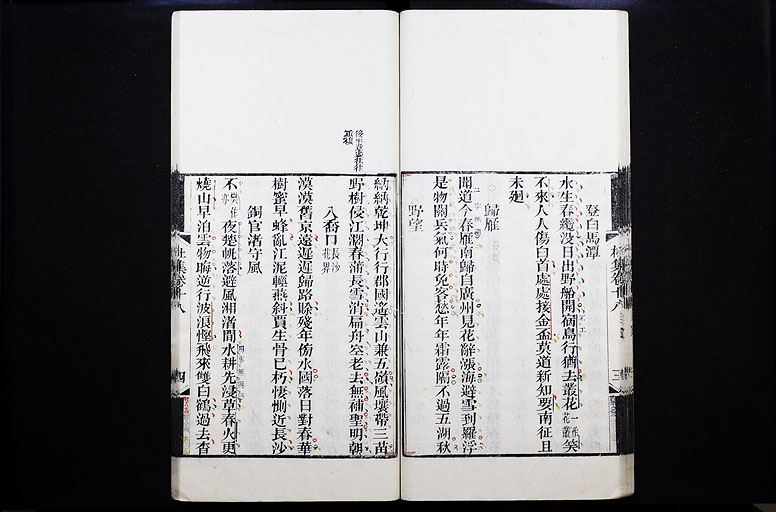 登白馬潭
水生春纜没日出野船開宿鳥行猶去叢花一作花叢笑
不來人人傷白首處處接金盃莫道新知要南征且
未廻
歸雁
聞道今春雁南歸自廣州見花辭漲海避雪到羅浮
是物關兵氣何時免客愁年年霜露隔不過五湖秋
野望
納納乾坤大行行郡國遙雲山兼五嶺風壤帶三苗
野樹侵江濶春蒲長雪消扁舟空老去無補聖明朝
入喬口長沙北界
漠漠舊京遠遲遲歸路賖殘年傍水國落日對春華
樹蜜早蜂亂江泥輕燕斜賈生骨已朽悽惻近長沙
銅官渚守風
不亦作夜楚帆落避風湘渚間水耕先浸草春火更
燒山早泊雲物晦逆行波浪慳飛來雙白鶴過去杳
杜集卷十八
三
杜集卷十八
四